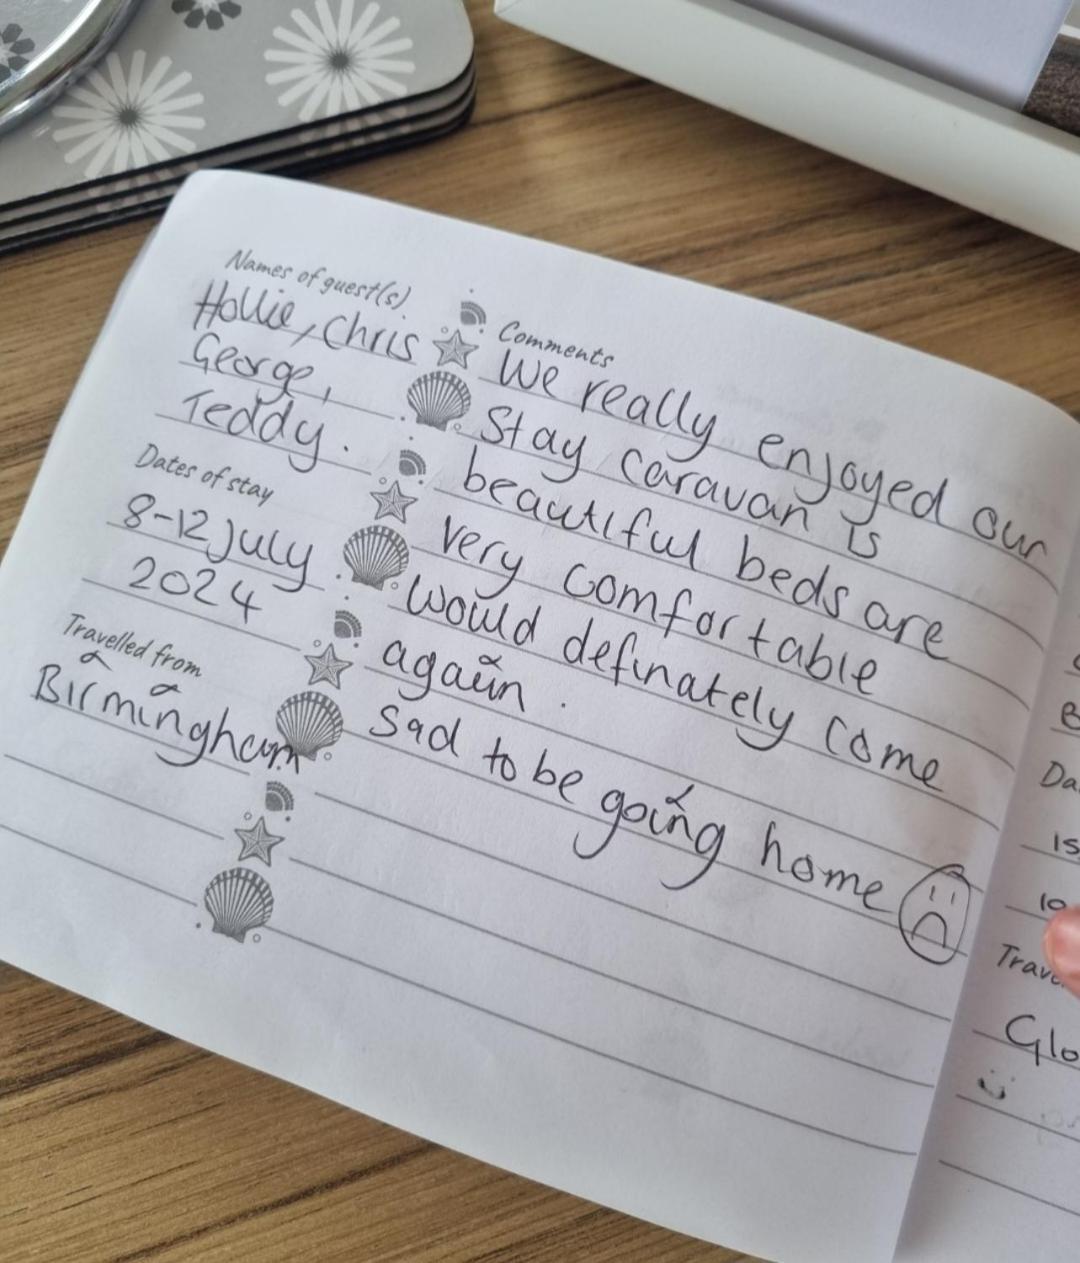 Names of guest(s)
Hollie, Chris
George,
Teddy.
Dates of stay
8-12 July
2024
Travelled from
Birmingham
Comments
We really enjoyed our
Stay caravan is
beautiful beds are
very comfortable
would definately come
again.
Sad to be going home
Glo